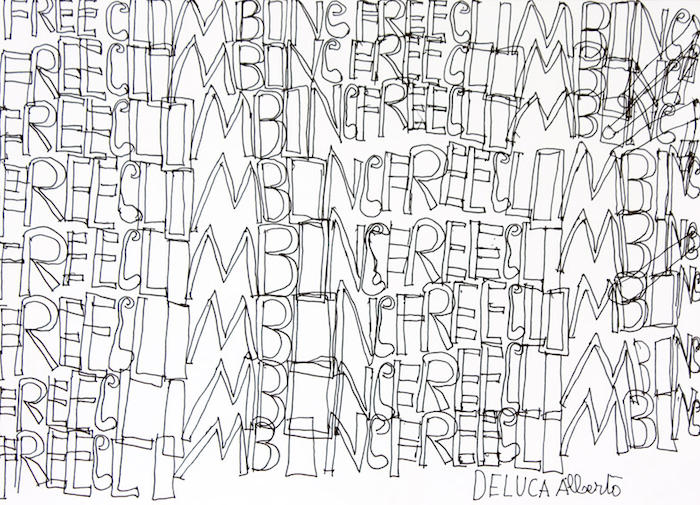 FREE CLIMBING FREE CLIMBING
FREECLIMBING FREECLIMBING
FREECLIMBINGFREECLIMBING
FREECLIMBINGFREECLIMBING
FREECLIMBINGFREECLIMBING
FREECLIMBINGFREECLIMBING
FREECLIMBINGFREECLIMBING
FREECLIMBINGFREECLIMBING
DELUCA Alberto